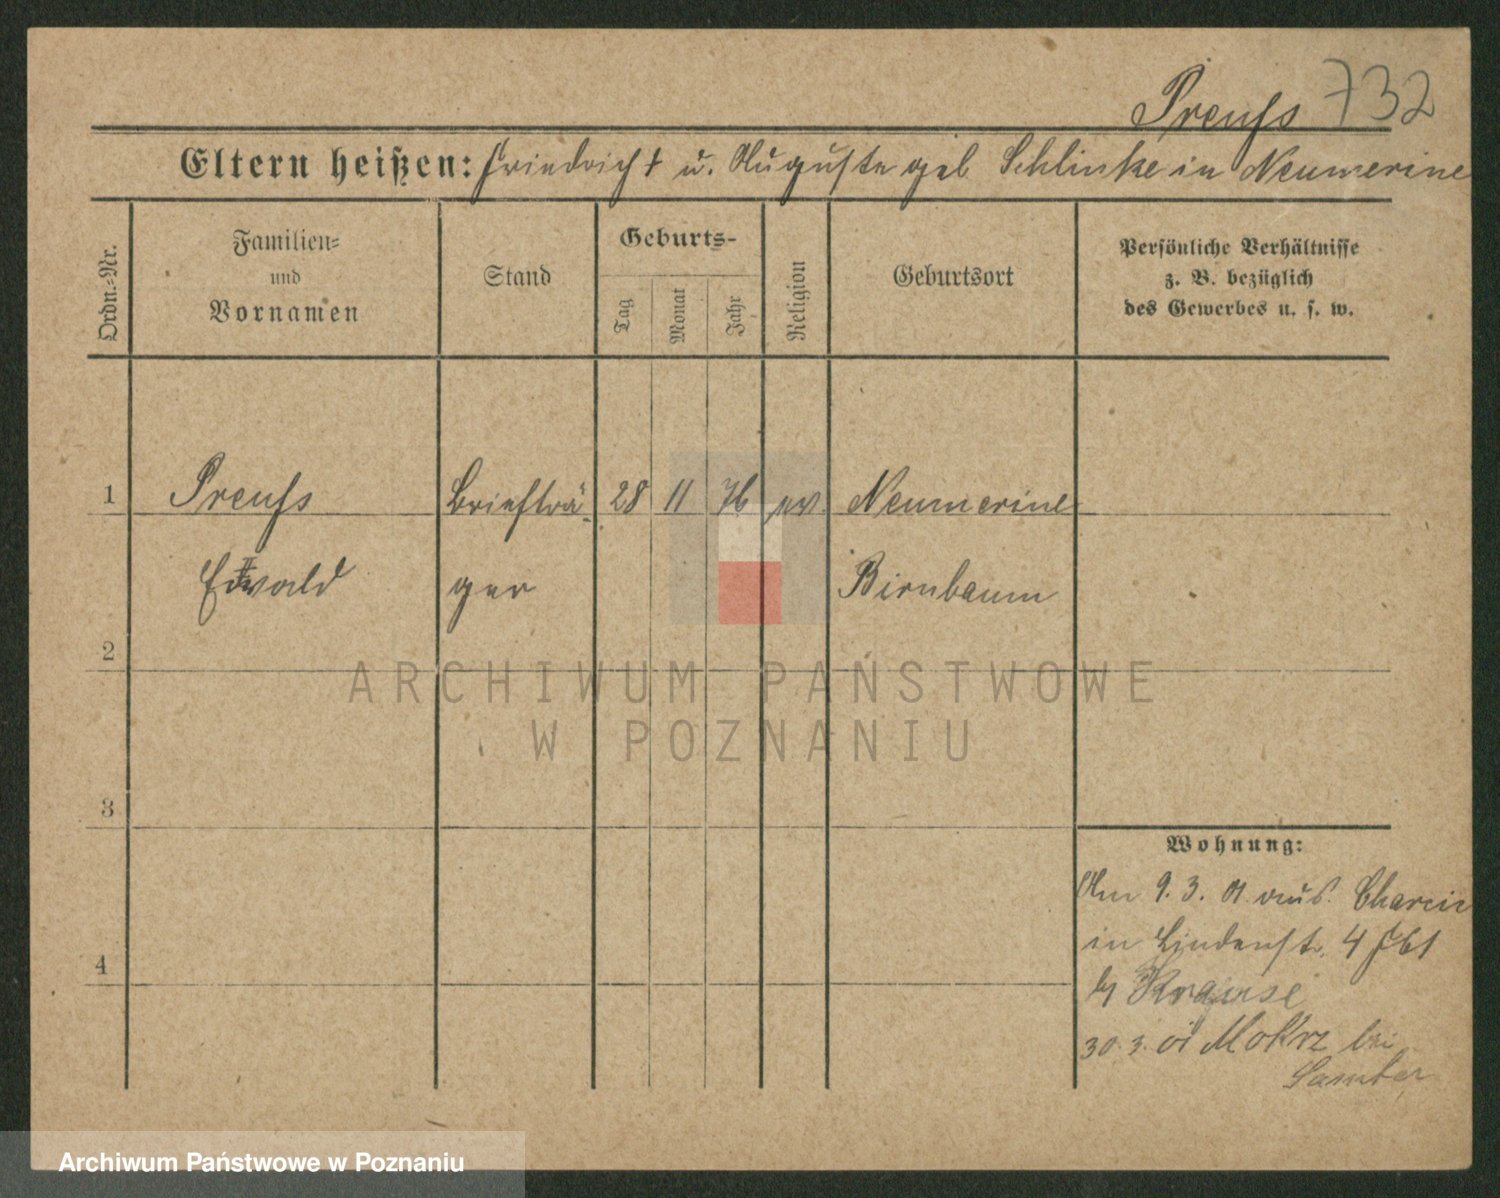 Preuſs 732
Eltern heißen: Friedrich † u. Auguste geb Schlinke in Neumerine
Ordn.-Nr.
Familien-
und
Vornamen
Stand
Geburts-
Tag
Monat
Jahr
Religion
Geburtsort
Persönliche Verhältnisse
z. B. bezüglich
des Gewerbes u. s. w.
1 Preuſs Briefträ- 28 11 76 ev. Neumerine
Edwald ger Birnbaum
2
ARCHIWUM PAŃSTWOWE
W POZNANIU
3
Wohnung:
Am 9. 3. 01 aus
in Lindenstr. 4
Krause
4
30. 3. 01 Mokrz bei
Archiwum Państwowe w Poznaniu